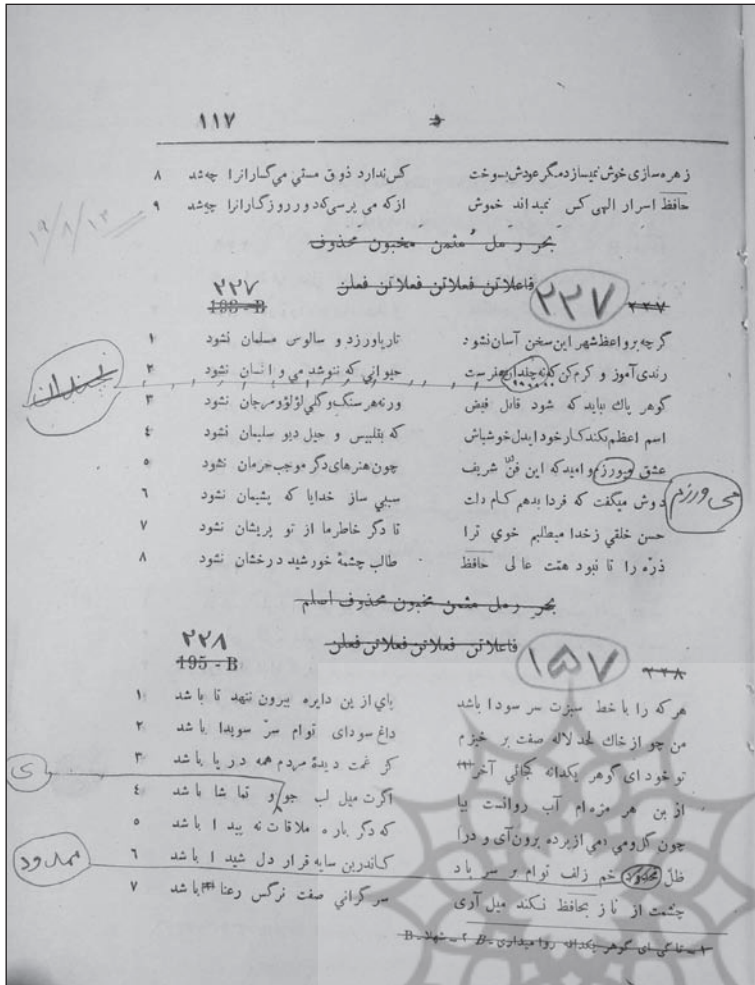 ۱۱۷
زهره سازی خوش نمیسازد مگر عودش بسوخت کس ندارد ذوق مستی می گسارانرا چه شد ۸
حافظ اسرار الهی کس نمیداند خموش از که می پرسی که دور روزگارانرا چه شد ۹
۱۹/۸/۱۳
بحر رمل مثمن مخبون محذوف
فاعلاتن فعلاتن فعلاتن فعلن
۲۲۷ ۲۳۷ ۲۲۷
193 - B
گر چه بر واعظ شهر این سخن آسان نشود تا ریا ورزد و سالوس مسلمان نشود ۱
رندی آموز و کرم کن که نه چندان هنرست حیوانی که ننوشد می و انسان نشود ۲
چندان
گوهر پاک بباید که شود قابل فیض ورنه هر سنک و گلی لؤلؤ و مرجان نشود ۳
اسم اعظم بکند کار خود ایدل خوشباش که بتلبیس و حیل دیو سلیمان نشود ٤
عشق میورزم و امید که این فنّ شریف چون هنرهای دگر موجب حرمان نشود ٥
می ورزم
دوش میگفت که فردا بدهم کام دلت سببی ساز خدایا که پشیمان نشود ٦
حسن خلقی زخدا میطلبم خوی ترا تا دگر خاطر ما از تو پریشان نشود ۷
ذرّه را تا نبود همّت عالی حافظ طالب چشمهٔ خورشید درخشان نشود ۸
بحر رمل مثمن مخبون محذوف اصلم
فاعلاتن فعلاتن فعلاتن فعلن
۲۲۸ ۱۵۷ ۲۲۸
195 - B
هر که را با خط سبزت سر سودا باشد پای از ین دایره بیرون ننهد تا باشد ۱
من چو از خاك لحد لاله صفت بر خیزم داغ سودای توام سرّ سویدا باشد ۲
تو خود ای گوهر یکدانه کجائی آخر (۱) کز غمت دیدهٔ مردم همه دریا باشد ۳
ی
از بن هر مژه ام آب روانست بیا اگرت میل لب جو و تماشا باشد ٤
چون گل و می دمی از پرده برون آی و درا که دگر باره ملاقات نه پیدا باشد ٥
ظلّ محدود خم زلف توام بر سر باد کاندرین سایه قرار دل شیدا باشد ٦
ممدود
چشمت از ناز بحافظ نکند میل آری سر گرانی صفت نرگس رعنا (۲) باشد ۷
۱ - تا کی ای گوهر یکدانه روا میداری - B ۲ - شهلا - B